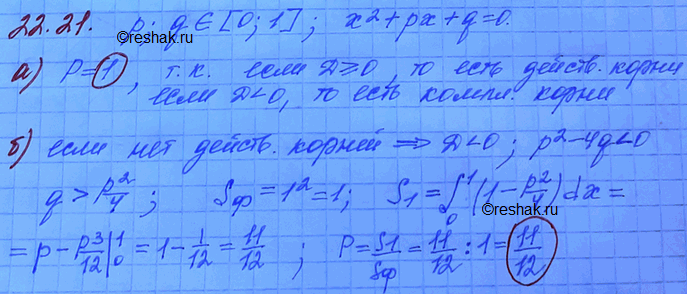 22.21. p; q ∈ [0; 1]; x² + px + q = 0.
©reshak.ru
а) P = 1, т.к. если D ≥ 0, то есть действ. корни
если D < 0, то есть компл. корни
б) если нет действ. корней ⟹ D < 0; p² - 4q < 0
q > p²/4; Sф = 1² = 1; S1 = ∫₀¹ (1 - p²/4) dx =
= p - p³/12 |₀¹ = 1 - 1/12 = 11/12; P = S1/Sф = 11/12 : 1 = 11/12
©reshak.ru